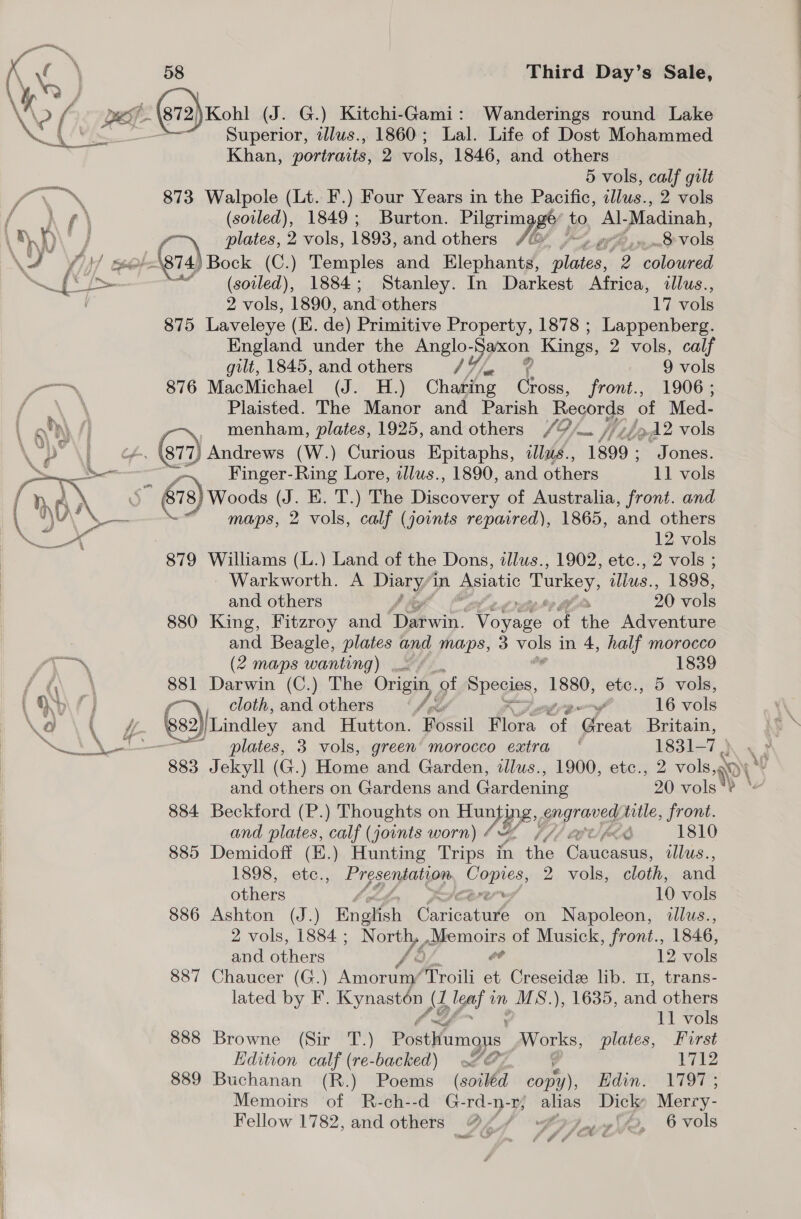 58 Third Day’s Sale,
872 Kohl (J. G.) Kitchi-Gami: Wanderings round Lake
Superior, illus., 1860; Lal. Life of Dost Mohammed
Khan, portraits, 2 vols, 1846, and others
5 vols, calf gilt
873 Walpole (Lt. F.) Four Years in the Pacific, illus., 2 vols
(soiled), 1849; Burton. Pilgrimage to Al-Madinah,
plates, 2 vols, 1893, and others 8 vols
874 Bock (C.) Temples and Elephants, plates, 2 coloured
(soiled), 1884; Stanley. In Darkest Africa, illus.,
2 vols, 1890, and others 17 vols
875 Laveleye (E. de) Primitive Property, 1878; Lappenberg.
England under the Anglo-Saxon Kings, 2 vols, calf
gilt, 1845, and others 9 vols
876 MacMichael (J. H.) Charing Cross, front., 1906;
Plaisted. The Manor and Parish Records of Med-
menham, plates, 1925, and others 12 vols
877 Andrews (W.) Curious Epitaphs, illus., 1899; Jones.
Finger-Ring Lore, illus., 1890, and others 11 vols
878 Woods (J. E. T.) The Discovery of Australia, front. and
maps, 2 vols, calf (joints repaired), 1865, and others
12 vols
879 Williams (L.) Land of the Dons, illus., 1902, etc., 2 vols;
Warkworth. A Diary in Asiatic Turkey, illus., 1898,
and others 20 vols
880 King, Fitzroy and Darwin. Voyage of the Adventure
and Beagle, plates and maps, 3 vols in 4, half morocco
(2 maps wanting) 1839
881 Darwin (C.) The Origin of Species, 1880, etc., 5 vols,
cloth, and others 16 vols
882 Lindley and Hutton. Fossil Flora of Great Britain,
plates, 3 vols, green morocco extra 1831-7
883 Jekyll (G.) Home and Garden, illus., 1900, etc., 2 vols,
and others on Gardens and Gardening 20 vols
884 Beckford (P.) Thoughts on Hunting, engraved title, front.
and plates, calf (joints worn) 1810
885 Demidoff (E.) Hunting Trips in the Caucasus, illus.,
1898, etc., Presentation Copies, 2 vols, cloth, and
others 10 vols
886 Ashton (J.) English Caricature on Napoleon, illus.,
2 vols, 1884; North, Memoirs of Musick, front., 1846,
and others 12 vols
887 Chaucer (G.) Amorum Troili et Creseidæ lib. II, trans-
lated by F. Kynaston (1 leaf in MS.), 1635, and others
11 vols
888 Browne (Sir T.) Posthumous Works, plates, First
Edition calf (re-backed) 1712
889 Buchanan (R.) Poems (soiled copy), Edin. 1797;
Memoirs of R-ch--d G-rd-n-r, alias Dick Merry-
Fellow 1782, and others 6 vols